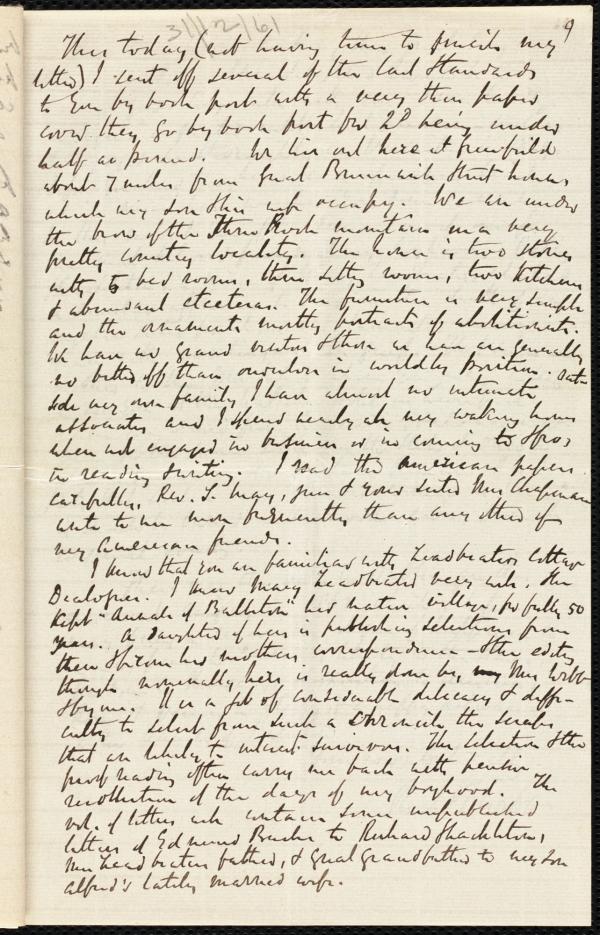 31/12/61
9
Thus today (not having time to finish my
letter) I sent off several of the last Standards
to you by book post with a very thin paper
cover. they go by book post for 2d being under
half a pound. We live out here at Greenfield
about 7 miles from Great Brunswick Street house,
which my son & his wife occupy. We are under
the brow of the Three Rock mountain in a very
pretty country locality. The house is two stories
with 6 bed rooms, three sitting rooms, two kitchens
& abundant etceteras. The furniture is very simple
and the ornaments mostly portraits of abolitionists.
We have no grand visitors & those we have are generally
no better off than ourselves in worldly position. Out-
side my own family I have almost no intimate
associates and I spend nearly all my waking hours
when not engaged in business or in coming to & fro,
in reading & writing. I read the American papers
carefully. Rev. S. May, jun & your sister Mrs Chapman
write to me more frequently than any other of
my American friends.
I know that you are familiar with Leadbeater's Cottage
Dialogues. I knew Mary Leadbeater very well. She
kept "Annals of Ballitore" her native village, for fully 50
years. A daughter of hers is publishing selections from
them & from her mother's correspondence — & the editing
though nominally hers is really done by my Mrs Webb
& by me. It is a job of considerable delicacy & diffi-
culty to select from such a chronicle the scraps
that are likely to interest survivors. The selection & the
proof reading often carry me back with pensive
recollection of the days of my boyhood. The
vol. of letters will contain some unpublished
letters of Edmund Burke to Richard Shackleton,
Mrs Leadbeater's father, & great grandfather to my son
Alfred's lately married wife.